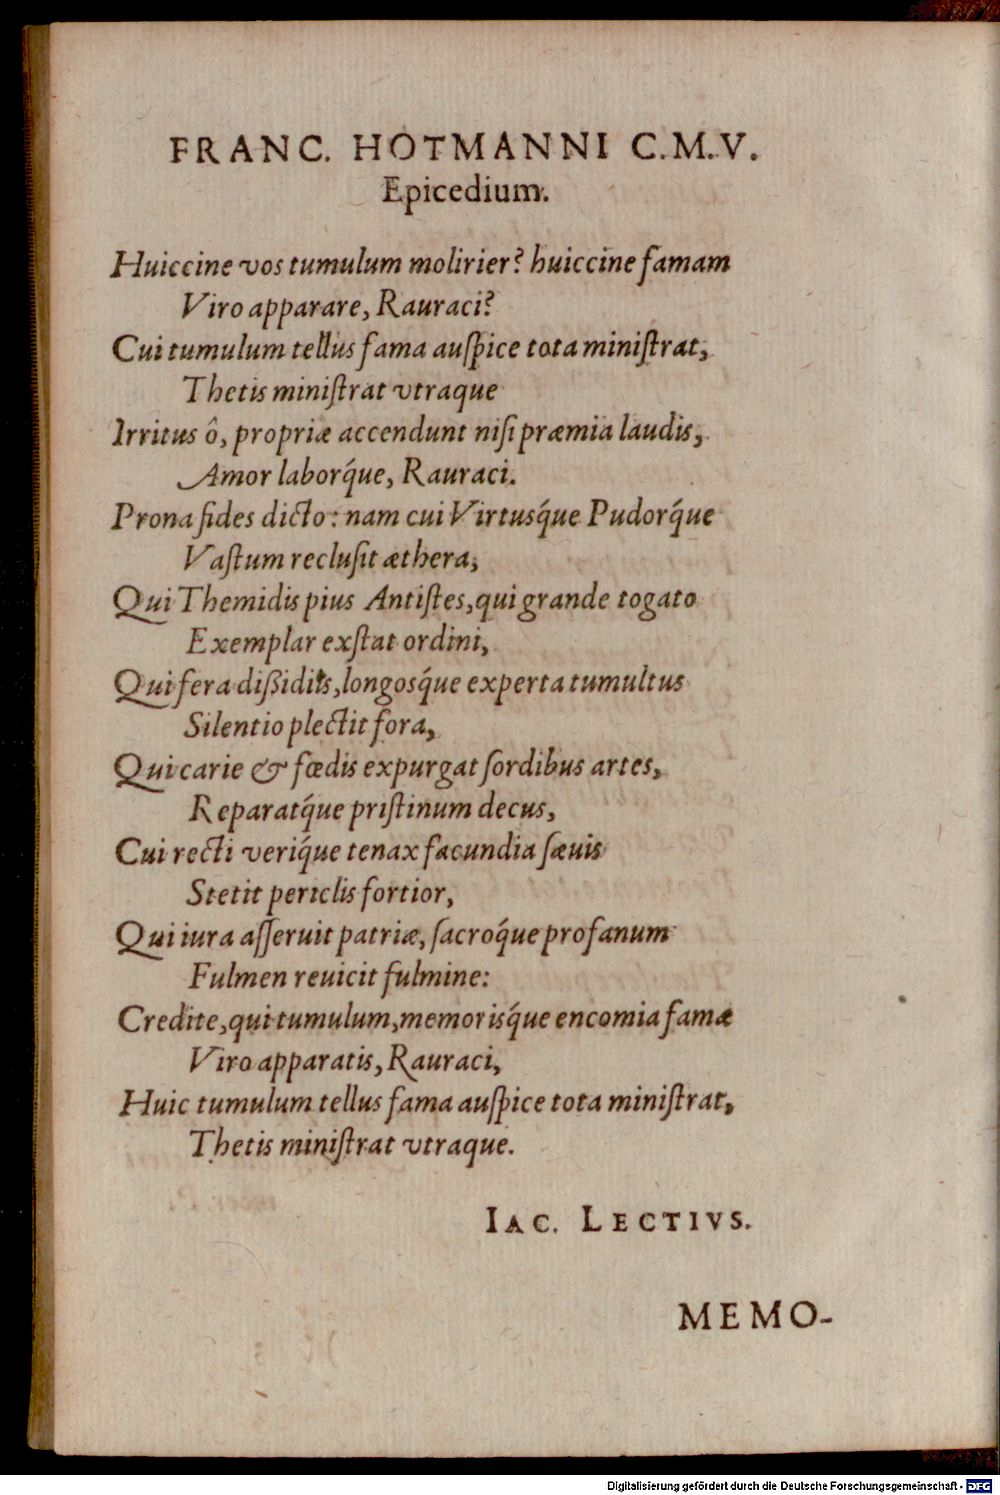 FRANC. HOTMANNI C.M.V.
Epicedium.
Huiccine vos tumulum molirier? huiccine famam
Viro apparare, Rauraci?
Cui tumulum tellus fama auſpice tota miniſtrat,
Thetis miniſtrat vtraque
Irritus ô, propriæ accendunt niſi præmia laudis,
Amor laborq́ue, Rauraci.
Prona fides dicto: nam cui Virtusq́ue Pudorq́ue
Vaſtum recluſit æthera,
Qui Themidis pius Antiſtes, qui grande togato
Exemplar exſtat ordini,
Qui fera dißidiis, longosq́ue experta tumultus
Silentio plectit fora,
Qui carie & fœdis expurgat ſordibus artes,
Reparatq́ue priſtinum decus,
Cui recti veriq́ue tenax facundia ſæuis
Stetit periclis fortior,
Qui iura aſſeruit patriæ, ſacroq́ue profanum
Fulmen reuicit fulmine:
Credite, qui tumulum, memorisq́ue encomia famæ
Viro apparatis, Rauraci,
Huic tumulum tellus fama auſpice tota miniſtrat,
Thetis miniſtrat vtraque.
IAC. LECTIVS.
MEMO-
Digitalisierung gefördert durch die Deutsche Forschungsgemeinschaft - DFG